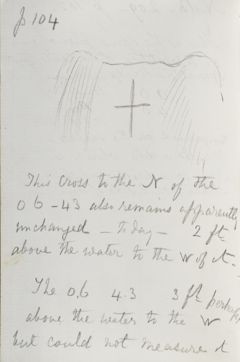 p 104
This Cross to the N of the
06-43 also remains apparently
unchanged - to day - 2 ft
above the water to the W of it.
The 06 43 3 ft perhaps
above the water to the W
but could not measure it